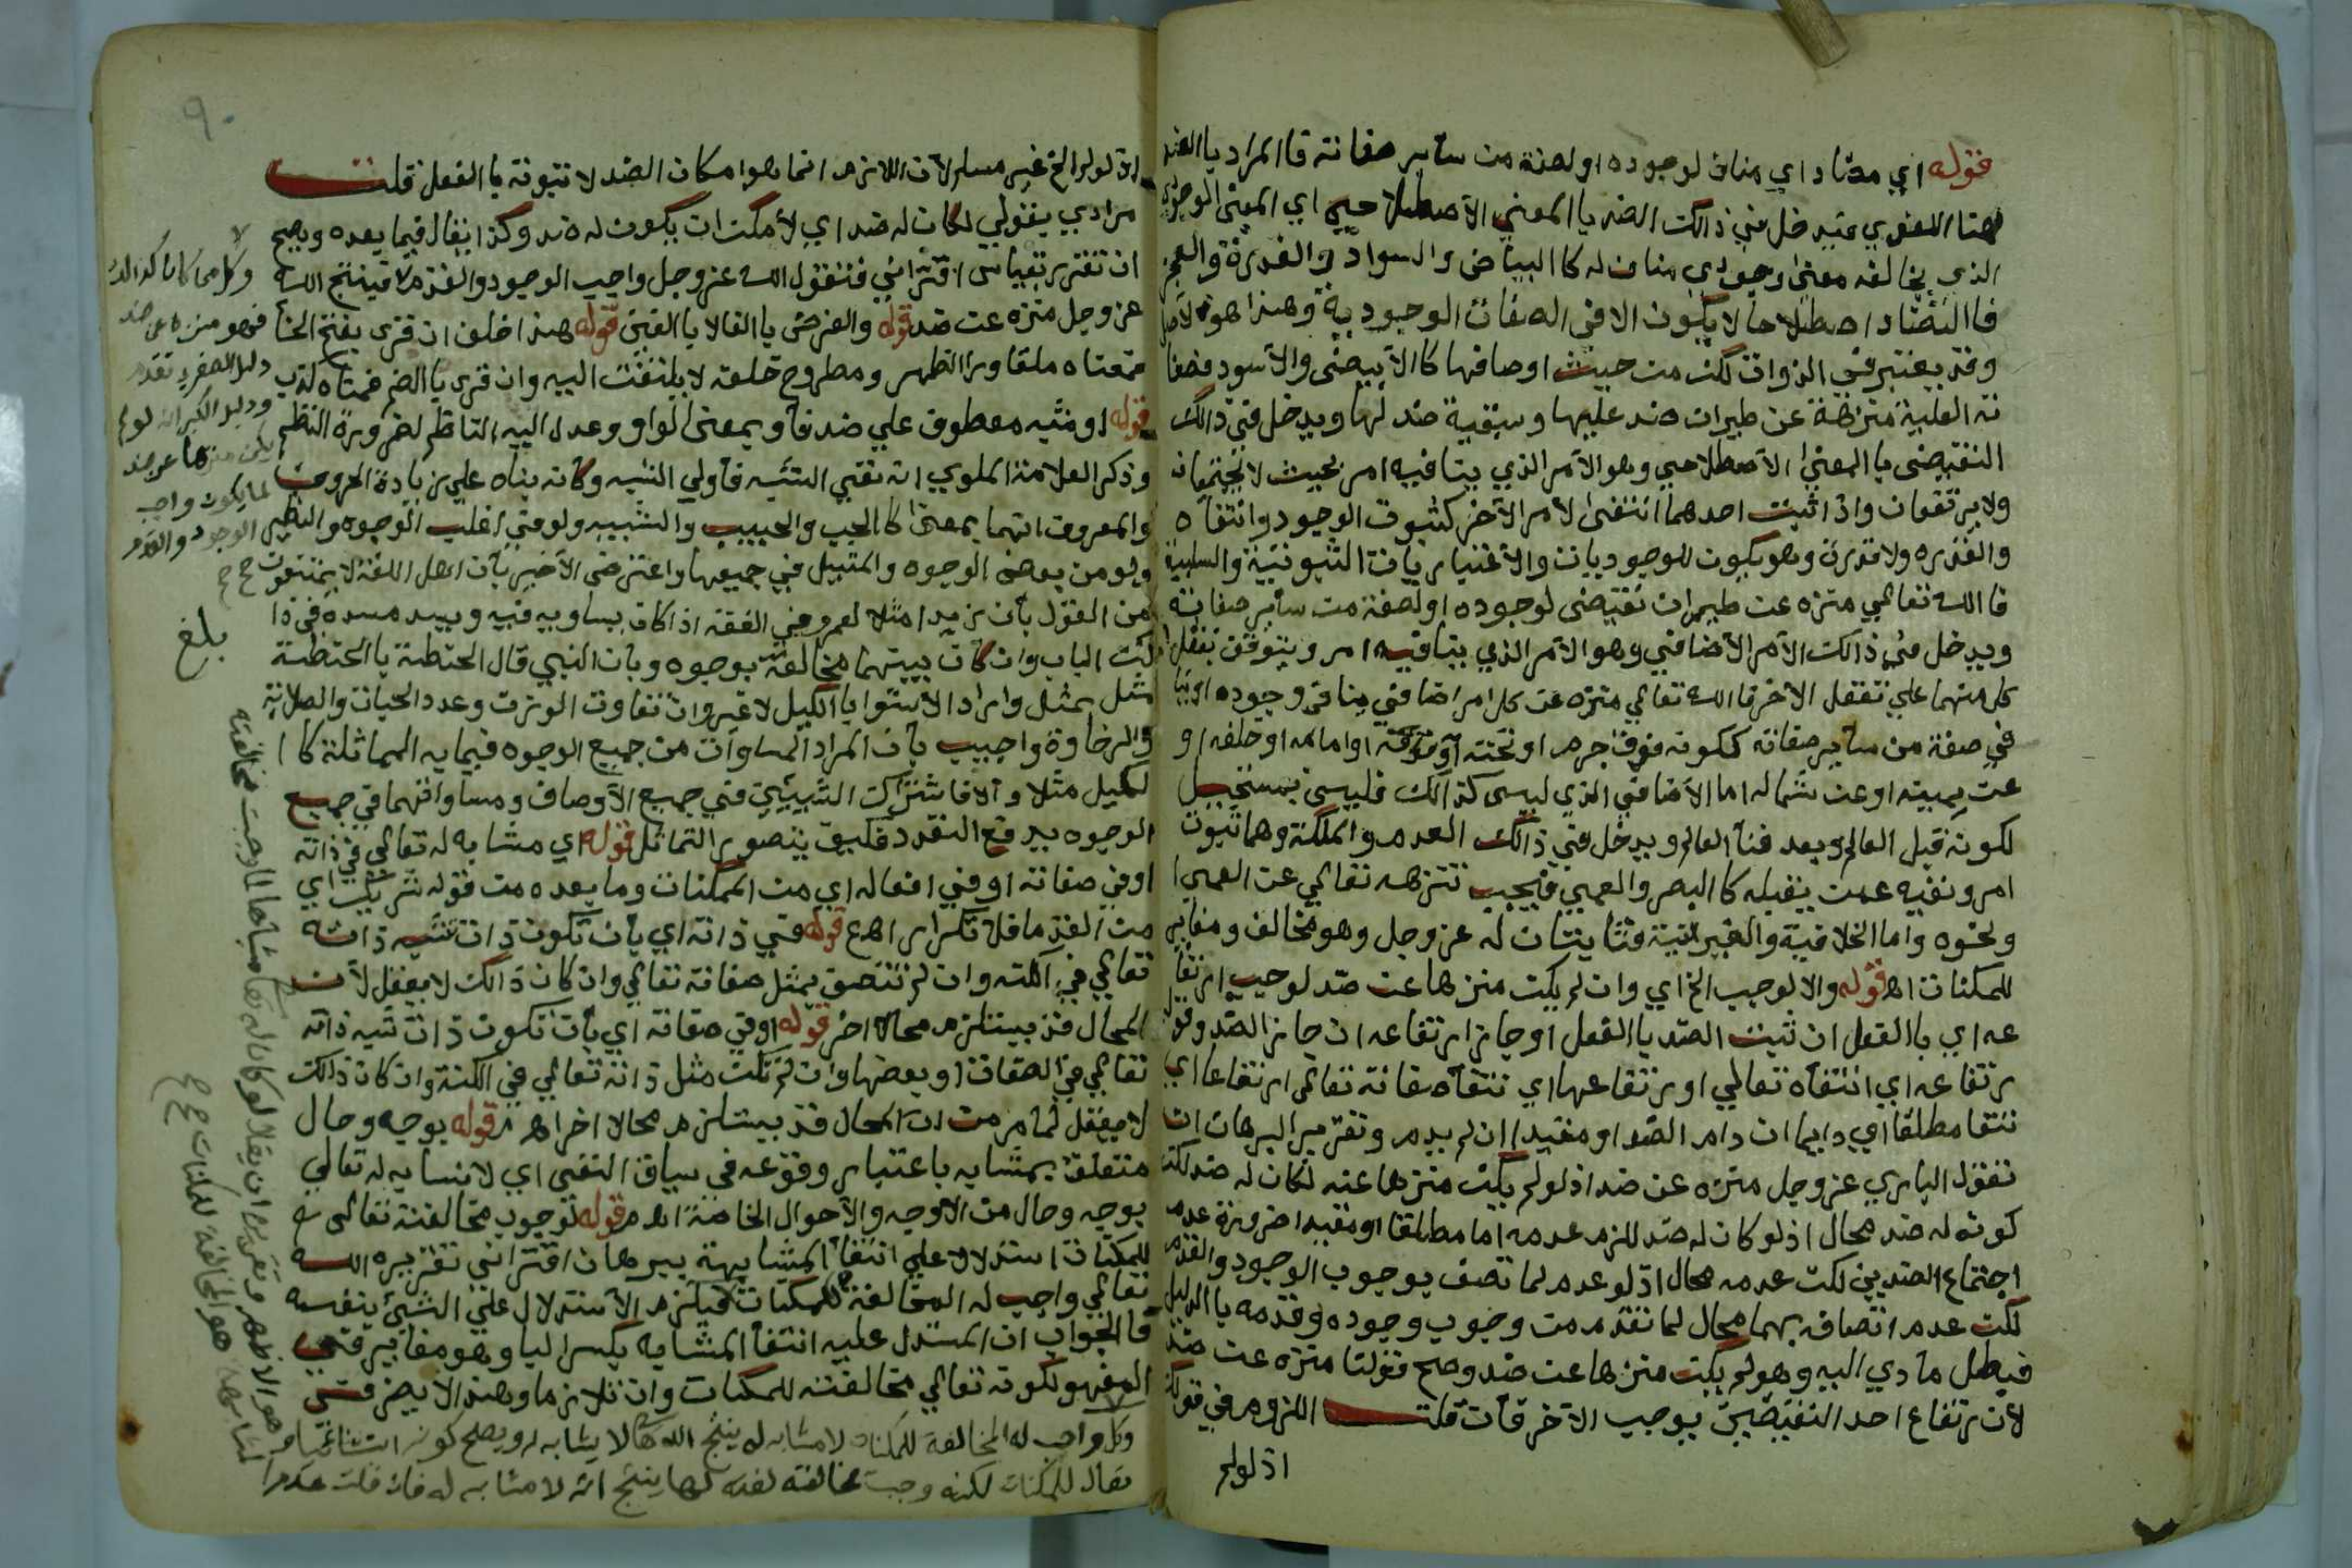 قوله اي مضاد اي مناف لوجوده اولصفة من ساير صفاته فا المراد با الضد
هنا اللغوي فيدخل في ذالك الضد با المعني الاصطلاحي اي المعني الوجودي
الذي يخالفه معني وجودي مناف له كا البياض والسواد والقدرة والعجز
فا التضاد اصطلاحا لا يكون الا في الصفات الوجودية وهذا هو الاصل
وقد يعتبر في الذوات لكن من حيث اوصافها كا الابيض والاسود فصفا
ته العلية منزهة عن طيران ضد عليها وسبقية ضد لها ويدخل في ذالك
النقيض با المعني الاصطلاحي وهو الامر الذي ينافيه امر بحيث لا يجتمعان
ولا يرتفعان واذا ثبت احدهما انتفى الامر الاخر كثبوت الوجود وانتفاه
والقدره ولا قدرة وهو يكون للوجوديات والاغتيار يات الثبوتية والسلبية
فا الله تعالي منزه عن طيران نقيض لوجوده اولصفة من ساير صفاته
ويدخل في ذالك الامر الاضافي وهو الامر الذي ينافيه امر ويتوقف تعقل
كل منهما علي تعقل الاخر فا الله تعالي منزه عن كل امر اضافي مناف وجوده
في صفة من ساير صفاته ككونه فوق جرم او تحته او فوقه او امامه او خلفه او
عن يمينه او عن شماله اما الاضافي الذي ليس كذالك فليس بمستحيل
لكونه قبل العالم وبعد فنا العالم ويدخل في ذالك العدم والملكة وهما ثبوت
امر ونفيه عمن يقبله كا البصر والعمي فيجب تنزهه تعالي عن العمي
ونحوه واما الخلافية والغيرية فثابتتان له عز وجل وهو مخالف ومغاير
للمكنات اه قوله والا لوجب الخ اي وان لم يكن منزها عن ضد لوجب ارتفا
عه اي با الفعل ان ثبت الضد با الفعل او جايز ارتفاعه ان جاز الضد وقوله
رتفاعه اي انتفاه تعالي او رتفاعها اي تنتفاه صفاته تعالي ارتفاعا اي
نتفا مطلقا اي دايما ان دام الضد او مقيدا ان لم يدم وتقرير البرهان ان
تقول الباري عز وجل منزه عن ضد اذ لو لم يكن منزها عنه لكان له ضد لكن
كونه له ضد محال اذ لو كان له ضد للزم عدمه اما مطلقا او مقيدا ضرورة عدم
اجتماع الضدين لكن عدمه محال اذ لو عدم لما تصف بوجوب الوجود والقدم
لكن عدم اتصافه بهما محال لما تقدم من وجوب وجوده وقدمه با الدليل
فبطل ما دي اليه وهو لم يكن منزها عن ضد وصح قولنا منزه عن ضد
لان رتفاع احد النقيضين يوجب الاخر فأن قلت اللزوم في قولك
اذ لولم
٩٠
اذ لولم الخ غير مسلم لان اللازم انما هو امكان الضد لا ثبوته با الفعل قلت
مرادي بقولي لكان له ضد اي لأمكن ان يكون له ضد وكذا يقال فيما بعده ويصح
ان تقرر بقياس اقتراني فتقول الله عز وجل واجب الوجود والقدم فينتج الله
عز وجل منزه عن ضد قوله والغرض با الفا لا با القين قوله هذا خلف ان قرى بفتح الخا
فمعناه ملقا ورا الظهر ومطروح خلفه لا يلتفت اليه وان قرى با الضم فمعناه لذب
قوله او شبه معطوف علي ضد فأو بمعني الواو وعدل اليه الناظم لضرورة النظم
وذكر العلامة الملوي انه نفي الشبه فأولي الشبيه وكانه بناه علي زيادة الحروف
والمعروف انهما بمعني كا الحب والحبيب والشبيه ولو في اغلب الوجوه والنظير
ولو من بعض الوجوه والمثيل في جميعها واعترض الاخير بأن اهل اللغة لا يمتنعون
من القول بأن زيد مثلا لعمرو في الفقه اذا كان يساويه فيه ويسد مسده في ذا
لك الباب وان كان بينهما مخالفة بوجوه وبأن النبي قال الحنطة با الحنطة
مثل بمثل واراد الاستوا با الكيل لا غير وان تفاوت الوزن وعدد الحبات والصلابة
والرخاوة واجيب بأن المراد المساوات من جميع الوجوه فيما به المماثلة كا ا
لكيل مثلا والا فا شتراك الشيئين في جميع الاوصاف ومساواتهما في جميع
الوجوه يدفع التعدد فكيف يتصور التماثل قوله اي مشابه له تعالي في ذاته
او في صفاته او في افعاله اي من الممكنات وما بعده من قوله شريك اي
من القدما فلا تكرار اه ع قوله في ذاته اي بأن تكون ذات شبه ذاته
تعالي في الكنه وان لم تتصف بمثل صفاته تعالي وان كان ذالك لا يعقل لأن
المحال قد يستلزم محالا اخر قوله او في صفاته اي بأن تكون ذات شبه ذاته
تعالي في الصفات او بعضها وان لم تكن مثل ذاته تعالي في الكنه وان كان ذالك
لا يعقل لما مر من ان المحال قد يستلزم محالا اخر اه م قوله بوجه وحال
متعلق بمشابه باعتبار وقوعه في سياق النفي اي لا نشابه له تعالي
بوجه وحال من الاوجه والاحوال الخاصة اه م قوله لوجوب مخالفته تعالى
للمكنات استدلال علي انتفا المشابهة ببرهان اقتراني تقريره الله
تعالي واجب له المخالفة للمكنات فيلزم الاستدلال علي الشيء بنفسه
فا الجواب ان المستدل عليه انتفا المشابه بكسر البا وهو مغاير في
المفهوم لكونه تعالي مخالفته للمكنات وان تلازما وهذا لا يضر
وكل واجب له المخالفة للمكنات لا مشابه له ينتج الله تعالى لا يشابه له ويصلح كونه استثنائيا
يقال للمكنات لكنه وجبت مخالفته لهذه كلها ينتج انه لا مشابه له فان قلت عدم
لا
وكل من كان كذالك
فهو منزه عن ضد
دليل الصغرى تقدم
ودليل الكبرى انه لو لم
يكن منزها عن ضد
لما يكون واجب
الوجود والقدم
بلغ
هو المخالفة للمكنات